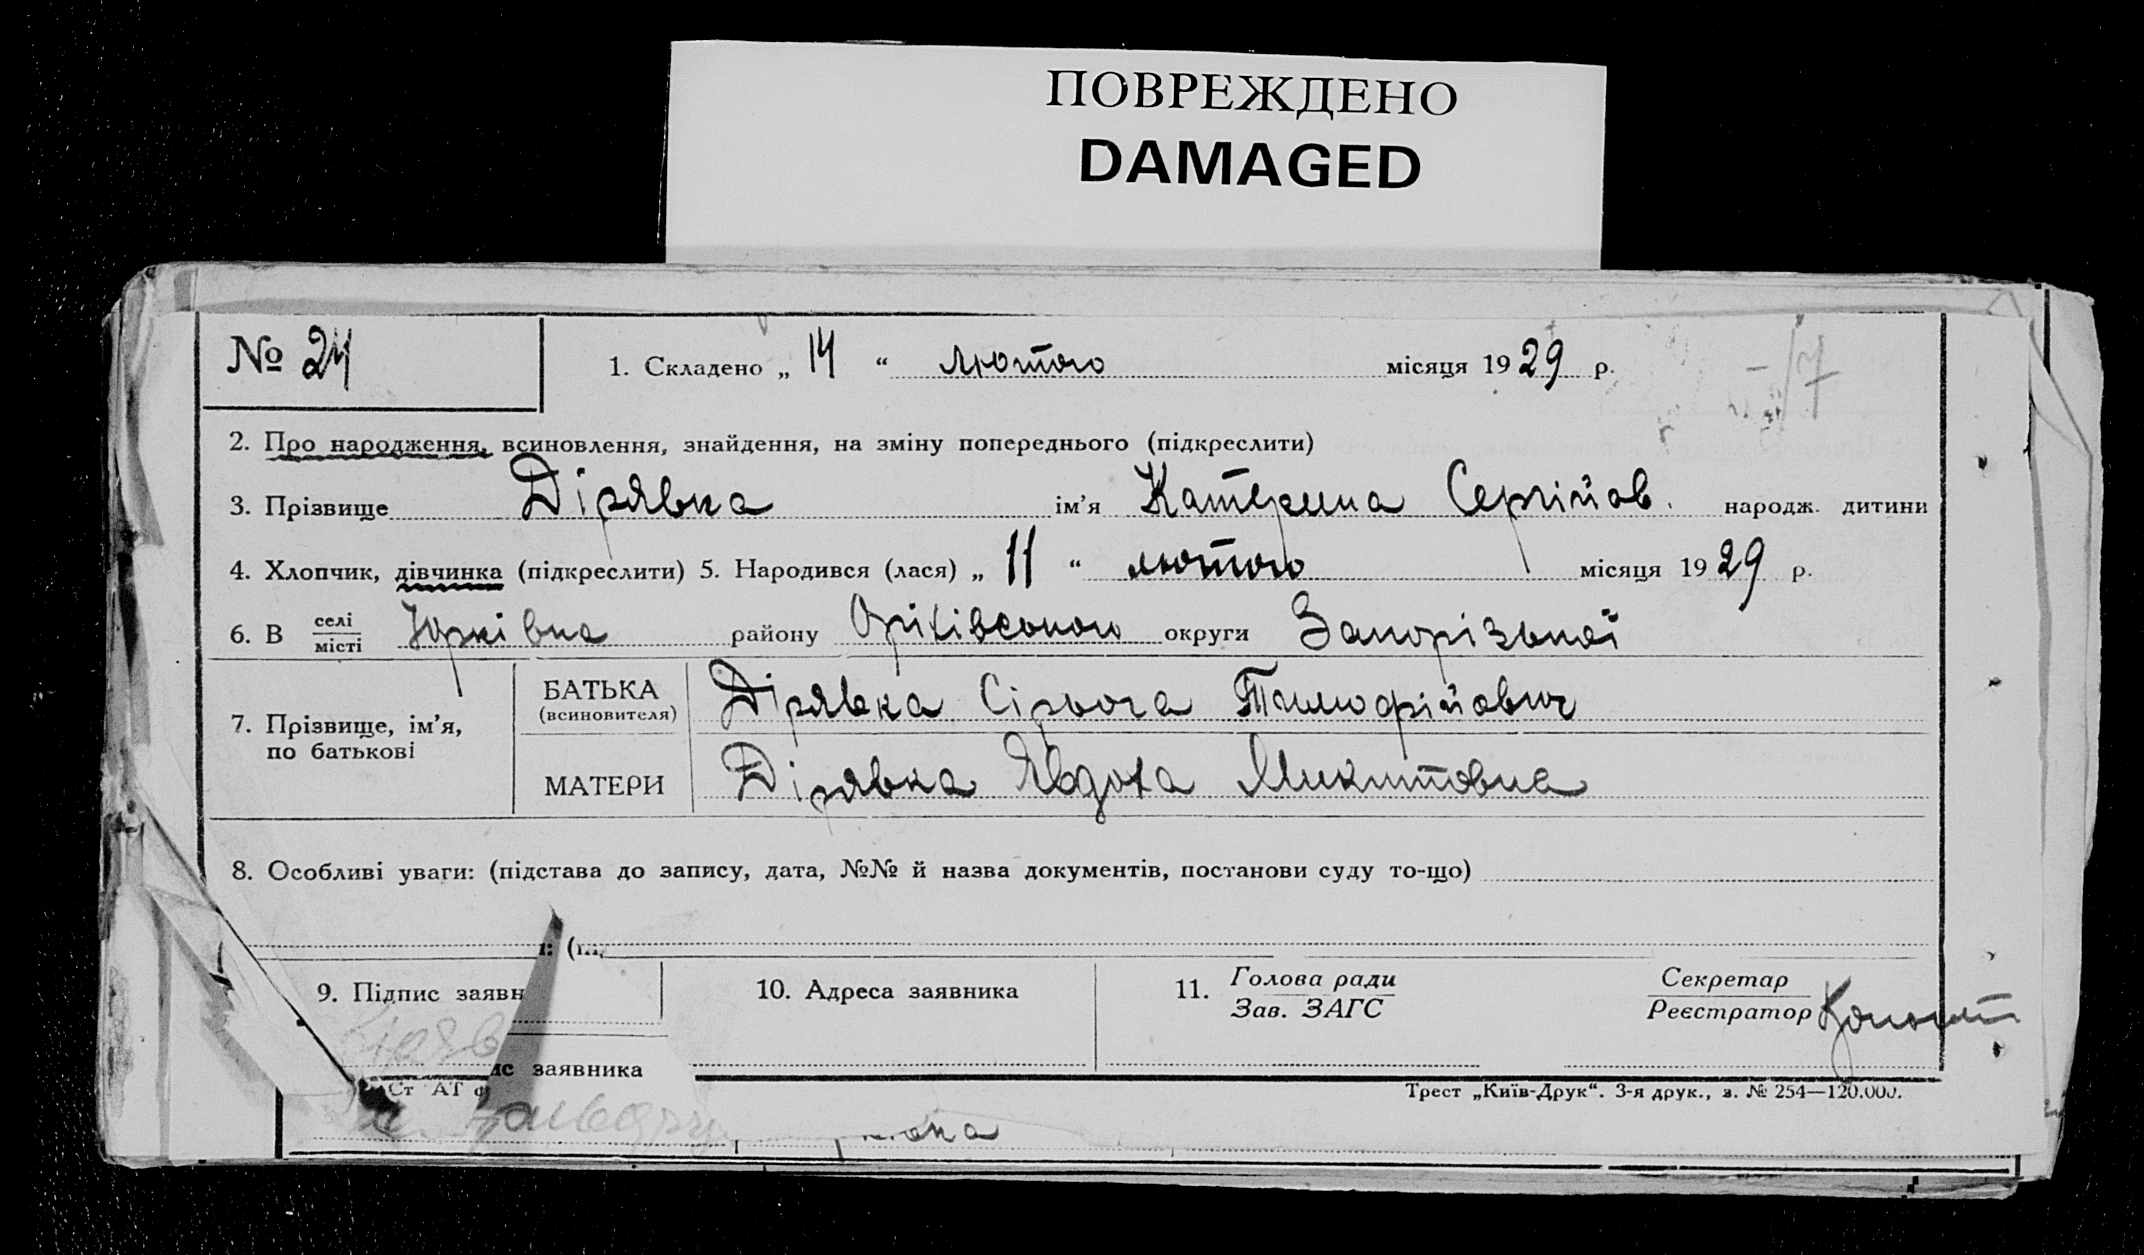 ПОВРЕЖДЕНО
DAMAGED
№ 24
1. Складено „ 14 “ лютого місяця 1929 р.
2. Про народження, всиновлення, знайдення, на зміну попереднього (підкреслити)
3. Прізвище Дірявка ім’я Катерина Сергійов. народж. дитини
4. Хлопчик, дівчинка (підкреслити) 5. Народився (лася) „ 11 “ лютого місяця 1929 р.
6. В селі
місті Юрківка району Оріхівського округи Запорізької
7. Прізвище, ім’я, по батькові
БАТЬКА (всиновителя) Дірявка Сірьога Тимофійович
МАТЕРИ Дірявка Явдоха Микитовна
8. Особливі уваги: (підстава до запису, дата, №№ й назва документів, постанови суду то-що)
9. Підпис заявн
10. Адреса заявника
11. Голова ради
Зав. ЗАГС
Секретар
Реєстратор
ис заявника
Ст АТ ф
Трест „Київ-Друк“. 3-я друк., з. № 254—120.000.